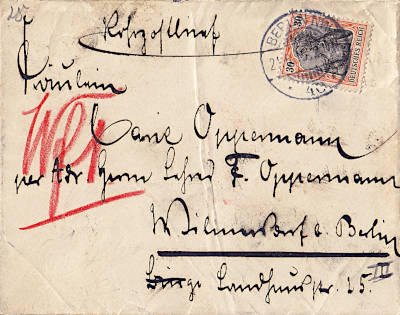 Rohrpostbrief
30 30
DEUTSCHES REICH
BERLIN
Fräulein
Marie Oppermann
per Adr Herrn Lehrer F. Oppermann
Wilmersdorf b. Berlin
Landhausstr. 15. III